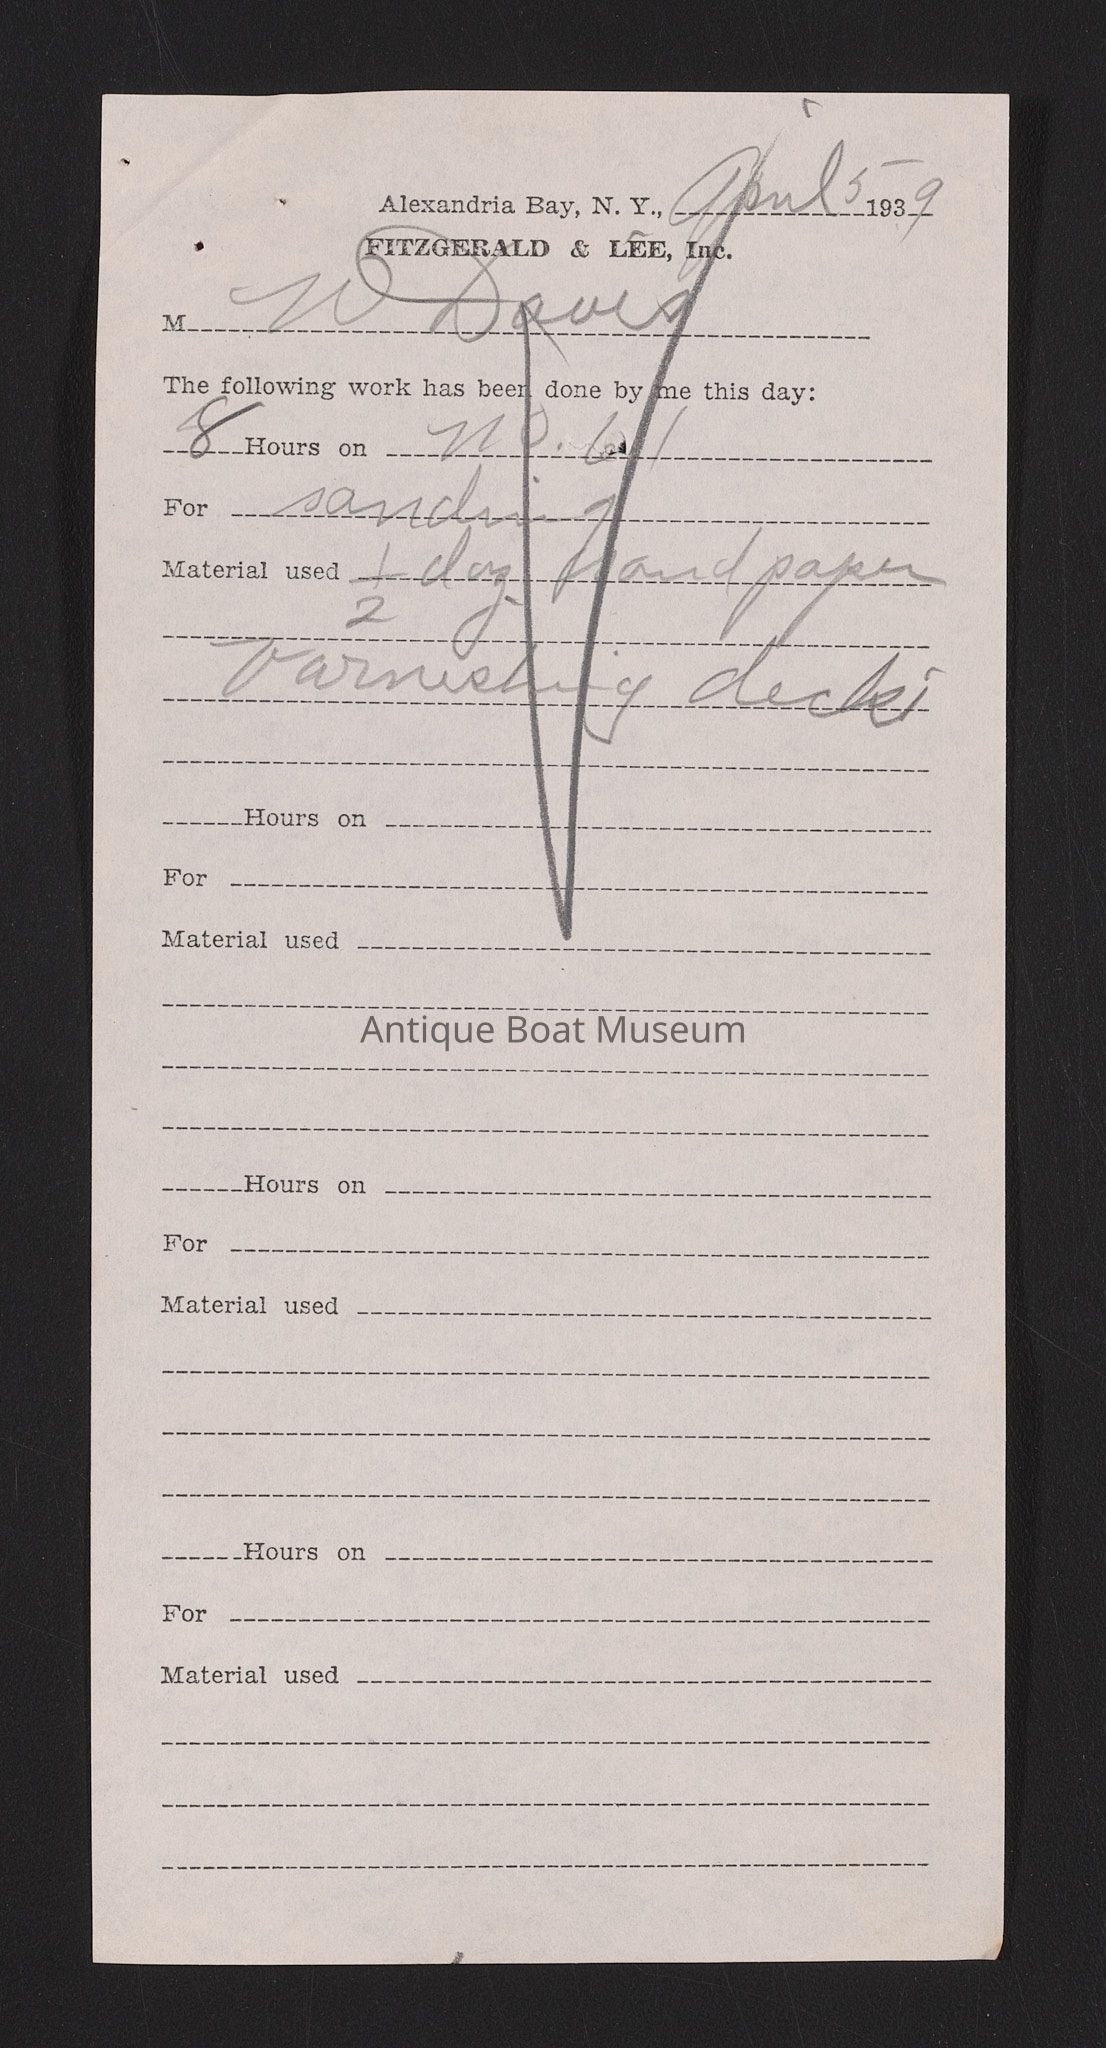 Alexandria Bay, N. Y., April 5 1939
FITZGERALD & LEE, Inc.
M W Davis
The following work has been done by me this day:
8 Hours on No. 61
For sanding
Material used 1/2 doz sandpaper
Varnishing decks
Hours on
For
Material used
Antique Boat Museum
Hours on
For
Material used
Hours on
For
Material used